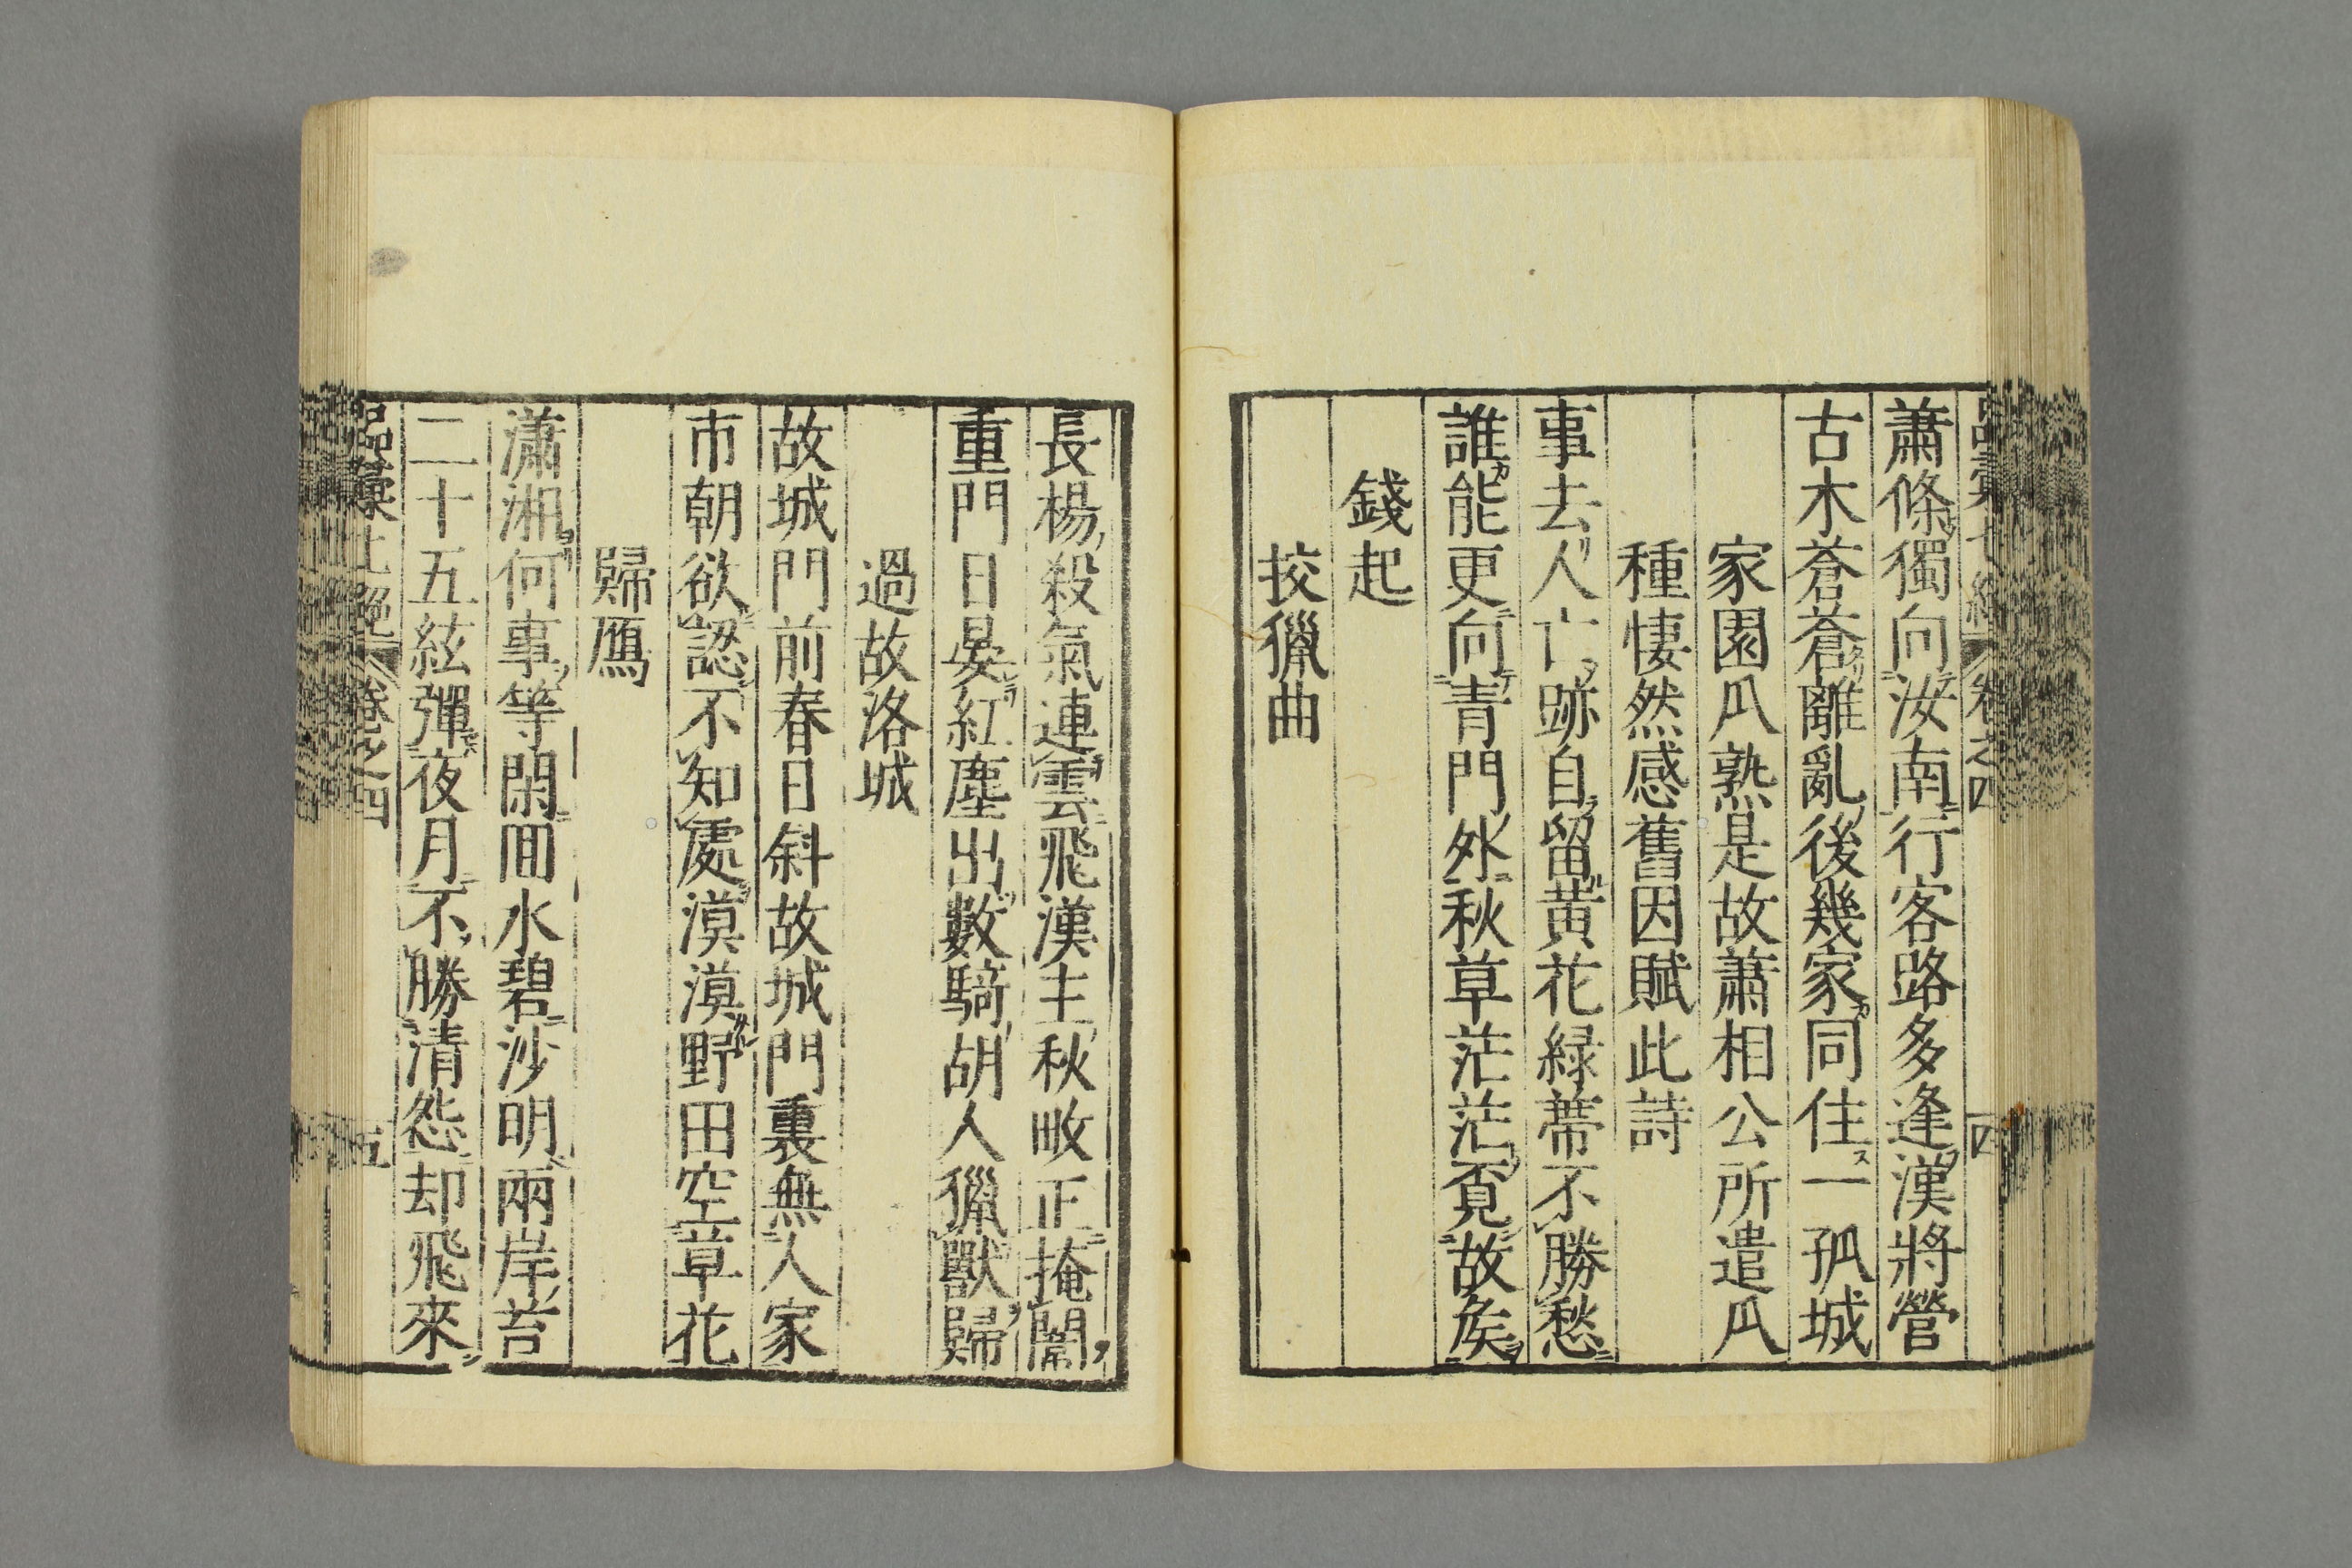 蕭條獨向汝南行客路多逢漢將營
古木蒼蒼離亂後幾家同住一孤城
家園瓜熟是故蕭相公所遣瓜
種悽然感舊因賦此詩
事去人亡跡自留黃花緑蔕不勝愁
誰能更向青門外秋草茫茫覔故矦
錢起
挍獵曲
長楊殺氣連雲飛漢主秋畋正掩闈
重門日晏紅塵出數騎胡人獵獸歸
過故洛城
故城門前春日斜故城門裏無人家
市朝欲認不知處漠漠野田空草花
歸鴈
瀟湘何事等閑囬水碧沙明兩岸苔
二十五絃彈夜月不勝清怨却飛來